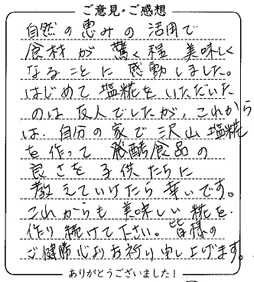 ご意見・ご感想
自然の恵みの活用で
食材が驚く程美味しく
なることに感動しました。
はじめて塩糀をいただいた
のは友人でしたが、これから
は、自分の家で沢山塩糀
を作って発酵食品の
良さを子供たちに
教えていけたら幸いです。
これからも美味しい糀を
作り続けて下さい。皆様の
ご健勝心よりお祈り申し上げます。
ありがとうございました!